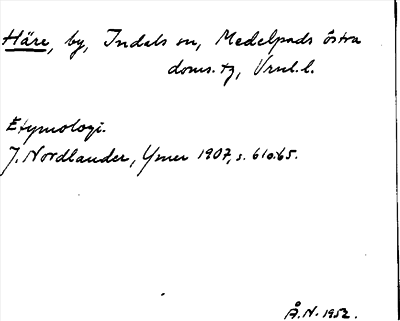 Häre, by, Indals sn, Medelpads östra
doms. tg, Vrnl. l.
Etymologi.
J. Nordlander, Ymer 1907, s. 61o.65.
Å.N. 1952.